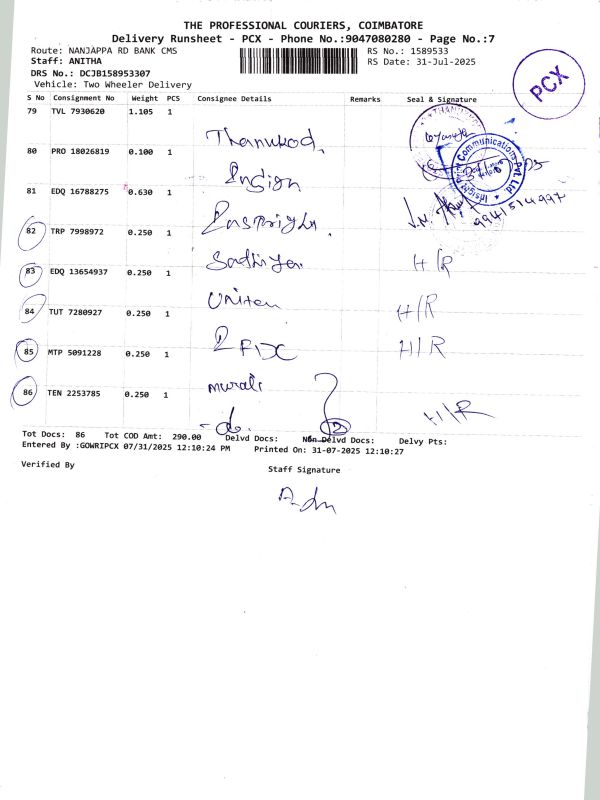 THE PROFESSIONAL COURIERS, COIMBATORE
Delivery Runsheet - PCX - Phone No.:9047080280 - Page No.:7
Route: NANJAPPA RD BANK CMS RS No.: 1589533
Staff: ANITHA RS Date: 31-Jul-2025
DRS No.: DCJB158953307
Vehicle: Two Wheeler Delivery
PCX
S No Consignment No Weight PCS Consignee Details Remarks Seal & Signature
79 TVL 7930620 1.105 1
80 PRO 18026819 0.100 1
81 EDQ 16788275 0.630 1
9941514997
82 TRP 7998972 0.250 1
H/R
83 EDQ 13654937 0.250 1
H/R
84 TUT 7280927 0.250 1
H/R
85 MTP 5091228 0.250 1
murali
86 TEN 2253785 0.250 1
H/R
Tot Docs: 86 Tot COD Amt: 290.00 Delvd Docs: Non Delvd Docs: Delvy Pts:
Entered By :GOWRIPCX 07/31/2025 12:10:24 PM Printed On: 31-07-2025 12:10:27
Verified By
Staff Signature